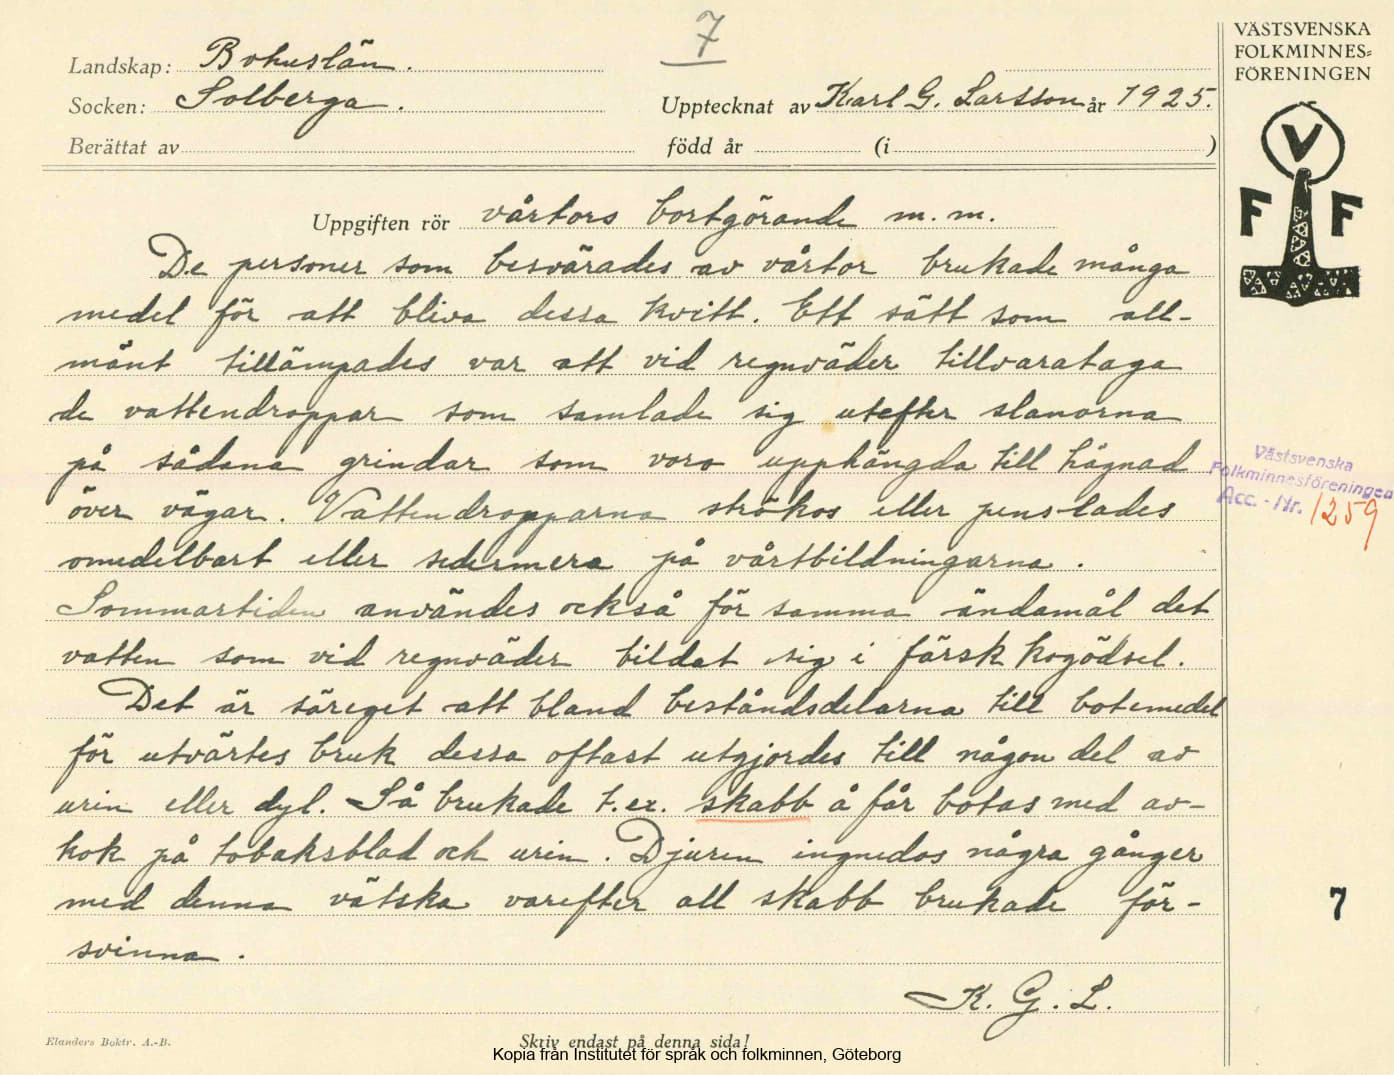 7
Landskap: Bohuslän.
Socken: Solberga.
Upptecknat av Karl G. Larsson år 1925.
Berättat av
född år (i )
VÄSTSVENSKA
FOLKMINNES-
FÖRENINGEN
V
F F
Uppgiften rör vårtors bortgörande m.m.
De personer som besvärades av vårtor brukade många
medel för att bliva dessa kvitt. Ett sätt som all-
mänt tillämpades var att vid regnväder tillvarataga
de vattendroppar som samlade sig utefter slanorna
på sådana grindar som voro upphängda till hägnad
över vägar. Vattendropparna ströks eller penslades
omedelbart eller sedermera på vårtbildningarna.
Sommartiden användes också för samma ändamål det
vatten som vid regnväder bildat sig i färsk kogödsel.
Det är säreget att bland beståndsdelarna till botemedel
för utvärtes bruk dessa oftast utgjordes till någon del av
urin eller dyl. Så brukade t.ex. skabb å får botas med av-
kok på tobaksblad och urin. Djuren ingnedos några gånger
med denna vätska varefter all skabb brukade för-
svinna.
K. G. L.
Västsvenska
Folkminnesföreningen
Acc. - Nr. 1259
7
Elanders Boktr. A.-B.
Skriv endast på denna sida!
Kopia från Institutet för språk och folkminnen, Göteborg